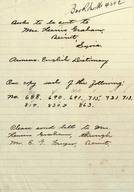 Books to be sent to
Mrs. Fannie Graham,
Beirut,
Syria.
Armeno-English Dictionary
One copy each of the following:
No. 688, 690, 691, 715, 731, 713,
817, 8360, 863.
Please send bill to Mrs.
Fannie Graham, through
Mr. E. G. Freyer, Beirut.